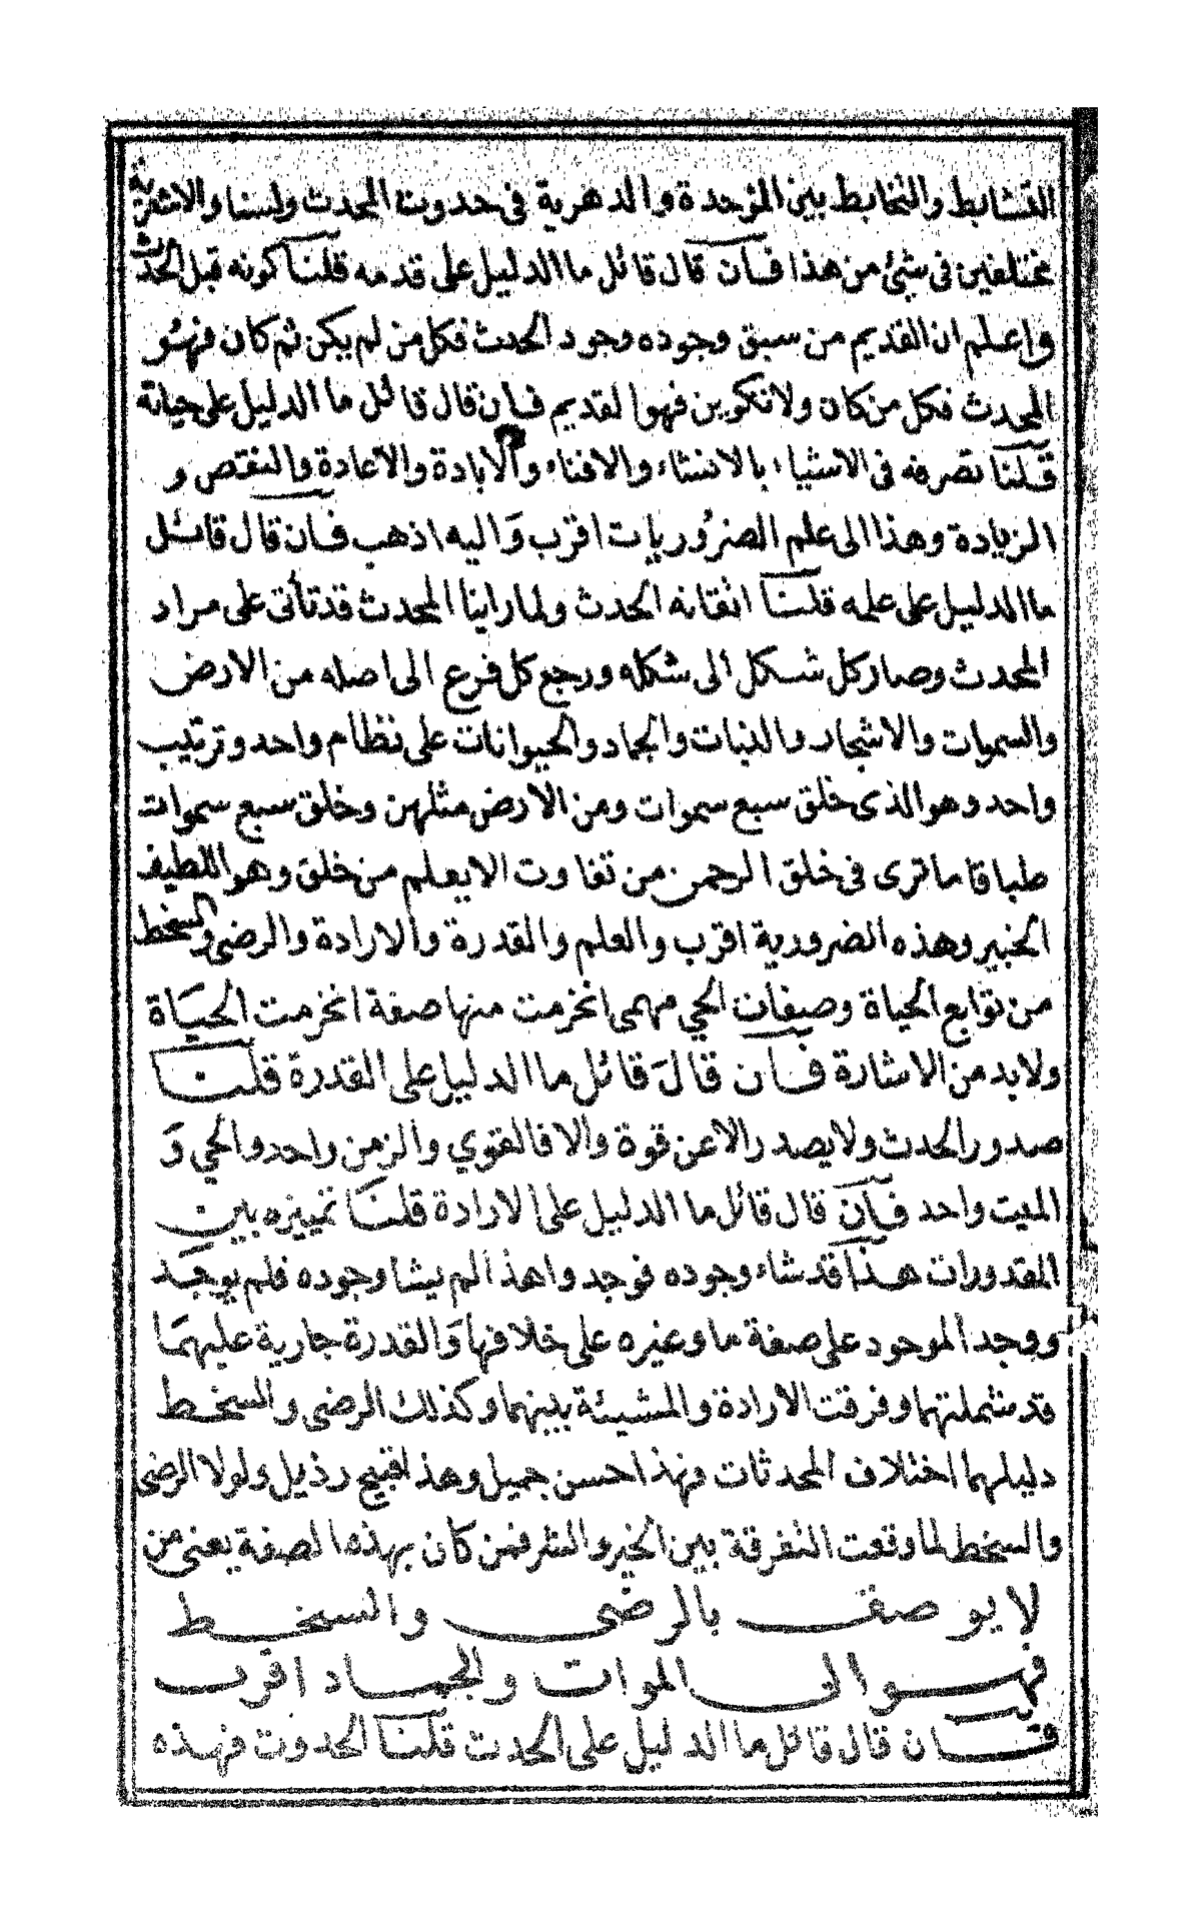 التشابط والتخابط بين المؤحدة والدهرية فى حدوث المحدث ولسنا والاشعرية
مختلفين فى شئ من هذا فان قال قائل ما الدليل على قدمه قلنا كونه قبل الحدث
واعلم ان القديم من سبق وجوده وجود الحدث فكل من لم يكن ثم كان فهو
المحدث فكل من كان ولا تكوين فهو القديم فان قال قائل ما الدليل على حياته
قلنا تصرفه فى الاشياء بالانشاء والافناء والابادة والاعادة والنقص و
الزيادة وهذا الى علم الضروريات اقرب وَاليه اذهب فان قال قائل
ما الدليل على علمه قلنا اتقانه الحدث ولما راينا المحدث قد تأتى على مراد
المحدث وصار كل شكل الى شكله ورجع كل فرع الى اصله من الارض
والسموات والاشجار والنبات والجماد والحيوانات على نظام واحد وترتيب
واحد وهو الذى خلق سبع سموات ومن الارض مثلهن وخلق سبع سموات
طباقا ما ترى فى خلق الرحمن من تفاوت الا يعلم من خلق وهو اللطيف
الخبير وهذه الضرورية اقرب والعلم والقدرة والارادة والرضى والسخط
من توابع الحياة وصفات الحي مهمى انخرمت منها صفة انخرمت الحياة
ولابد من الاشارة فان قالَ قائل ما الدليل على القدرة قلنا
صدور الحدث ولا يصدر الا عن قوة والا فالقوي والزمن واحد والحي وَ
الميت واحد فان قال قائل ما الدليل على الارادة قلنا تمييزه بين
المقدورات هذا قد شاء وجوده فوجد واهذا لم يشا وجوده فلم يوجد
ووجد الموجود على صفة ما وغيره على خلافها وَالقدرة جارية عليهمَا
قد شملتهما وفرقت الارادة والمشيئة بينهما وكذلك الرضى والسخط
دليلهما اختلاف المحدثات فهذا احسن جميل وهذا قبيح رذيل ولولا الرضى
والسخط لما وقعت التفرقة بين الخير والشر فمن كان بهذه الصفة يعنى من
لا يوصف بالرضى والسخط
فهو الى الموات والجماد اقرب
فان قال قائل ما الدليل على الحدث قلنا الحدوث فهذه